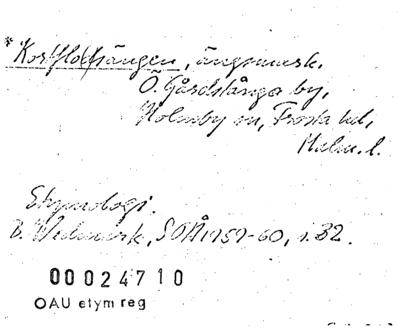 *Korsflothsängen, ängsmark,
Ö. Gårdstånga by,
Holmby sn, Frosta hd,
Malm. l.
Etymologi.
B. Widmark, SOÅ 1959-60, s. 32.
00024710
OAU etym reg